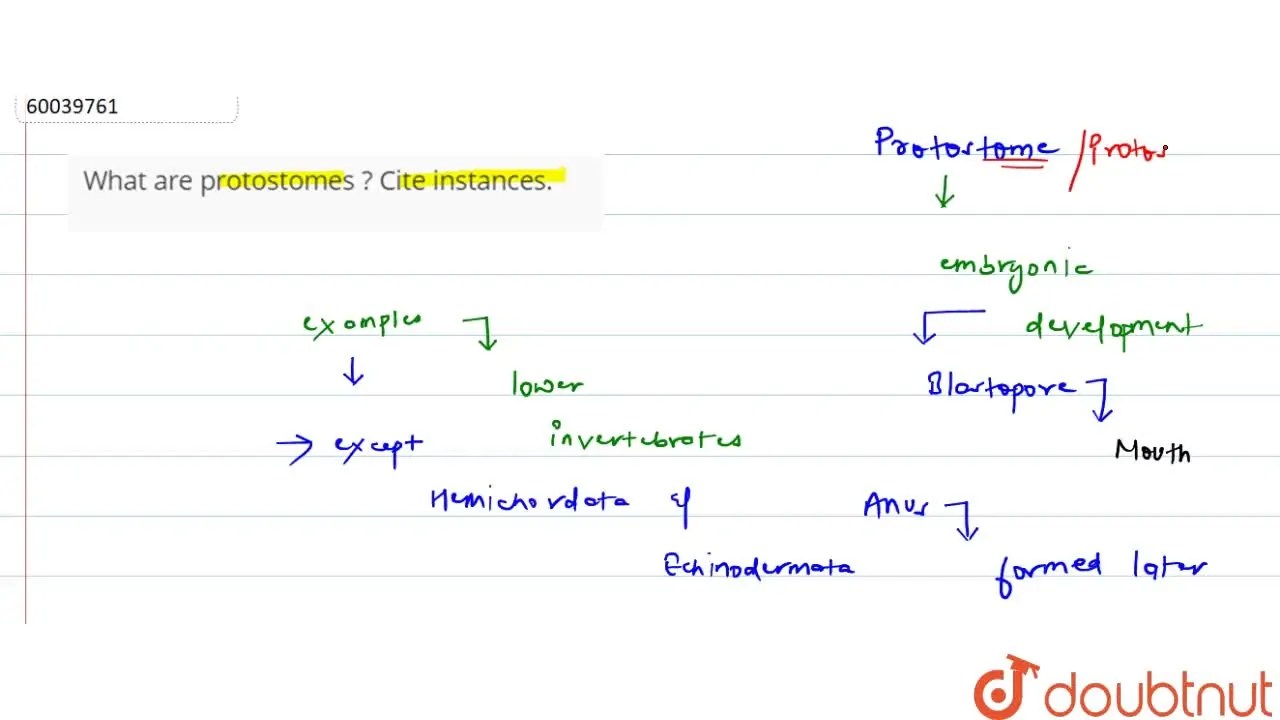 60039761
What are protostomes ? Cite instances.
Protostome / Protos
embryonic
development
Blastopore
Mouth
Anus
formed later
examples
lower
invertebrates
→ except
Hemichordata &
Echinodermata
doubtnut